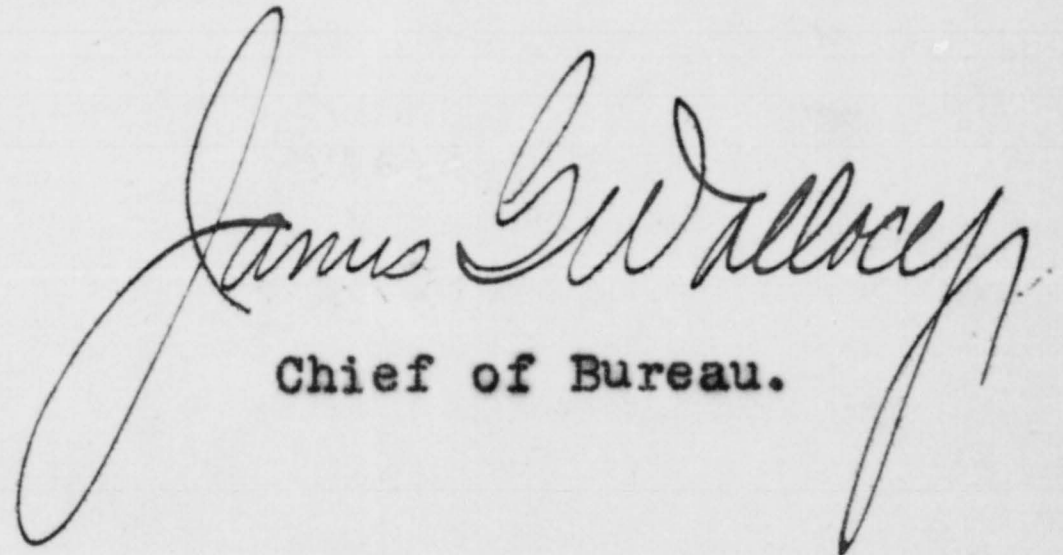 James G Wallace Jr
Chief of Bureau.